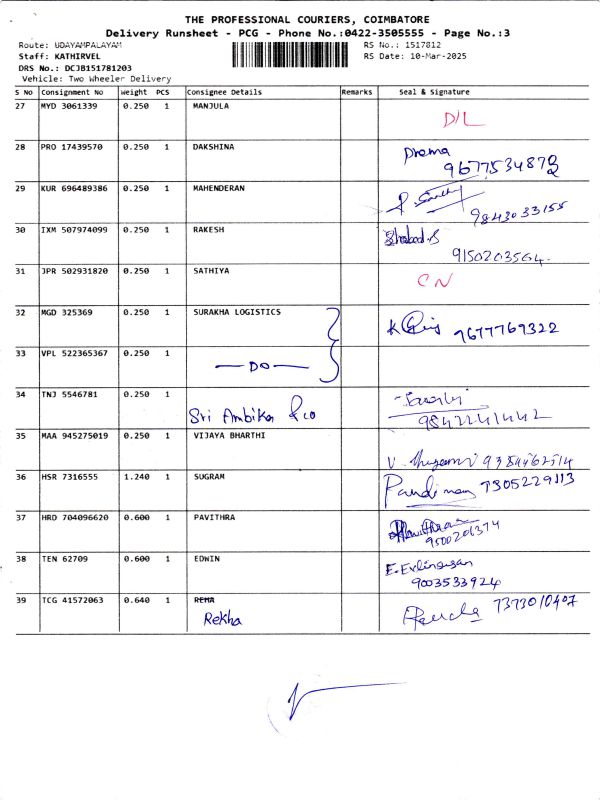 THE PROFESSIONAL COURIERS, COIMBATORE
Delivery Runsheet - PCG - Phone No.:0422-3505555 - Page No.:3
Route: UDAYAMPALAYAM RS No.: 1517812
Staff: KATHIRVEL RS Date: 10-Mar-2025
DRS No.: DCJB151781203
Vehicle: Two Wheeler Delivery
S No Consignment No Weight PCS Consignee Details Remarks Seal & Signature
27 MYD 3061339 0.250 1 MANJULA
D/L
28 PRO 17439570 0.250 1 DAKSHINA
Prema
9677534873
29 KUR 696489386 0.250 1 MAHENDERAN
9843033155
30 IXM 507974099 0.250 1 RAKESH
9150203564.
31 JPR 502931820 0.250 1 SATHIYA
CN
32 MGD 325369 0.250 1 SURAKHA LOGISTICS
K 9677769322
33 VPL 522365367 0.250 1
DO
34 TNJ 5546781 0.250 1
Sri Ambika & co
9842241442
35 MAA 945275019 0.250 1 VIJAYA BHARTHI
V.
36 HSR 7316555 1.240 1 SUGRAM
7305229113
37 HRD 704096620 0.600 1 PAVITHRA
9500201374
38 TEN 62709 0.600 1 EDWIN
9003533924
39 TCG 41572063 0.640 1 REMA
Rekha
7373010407